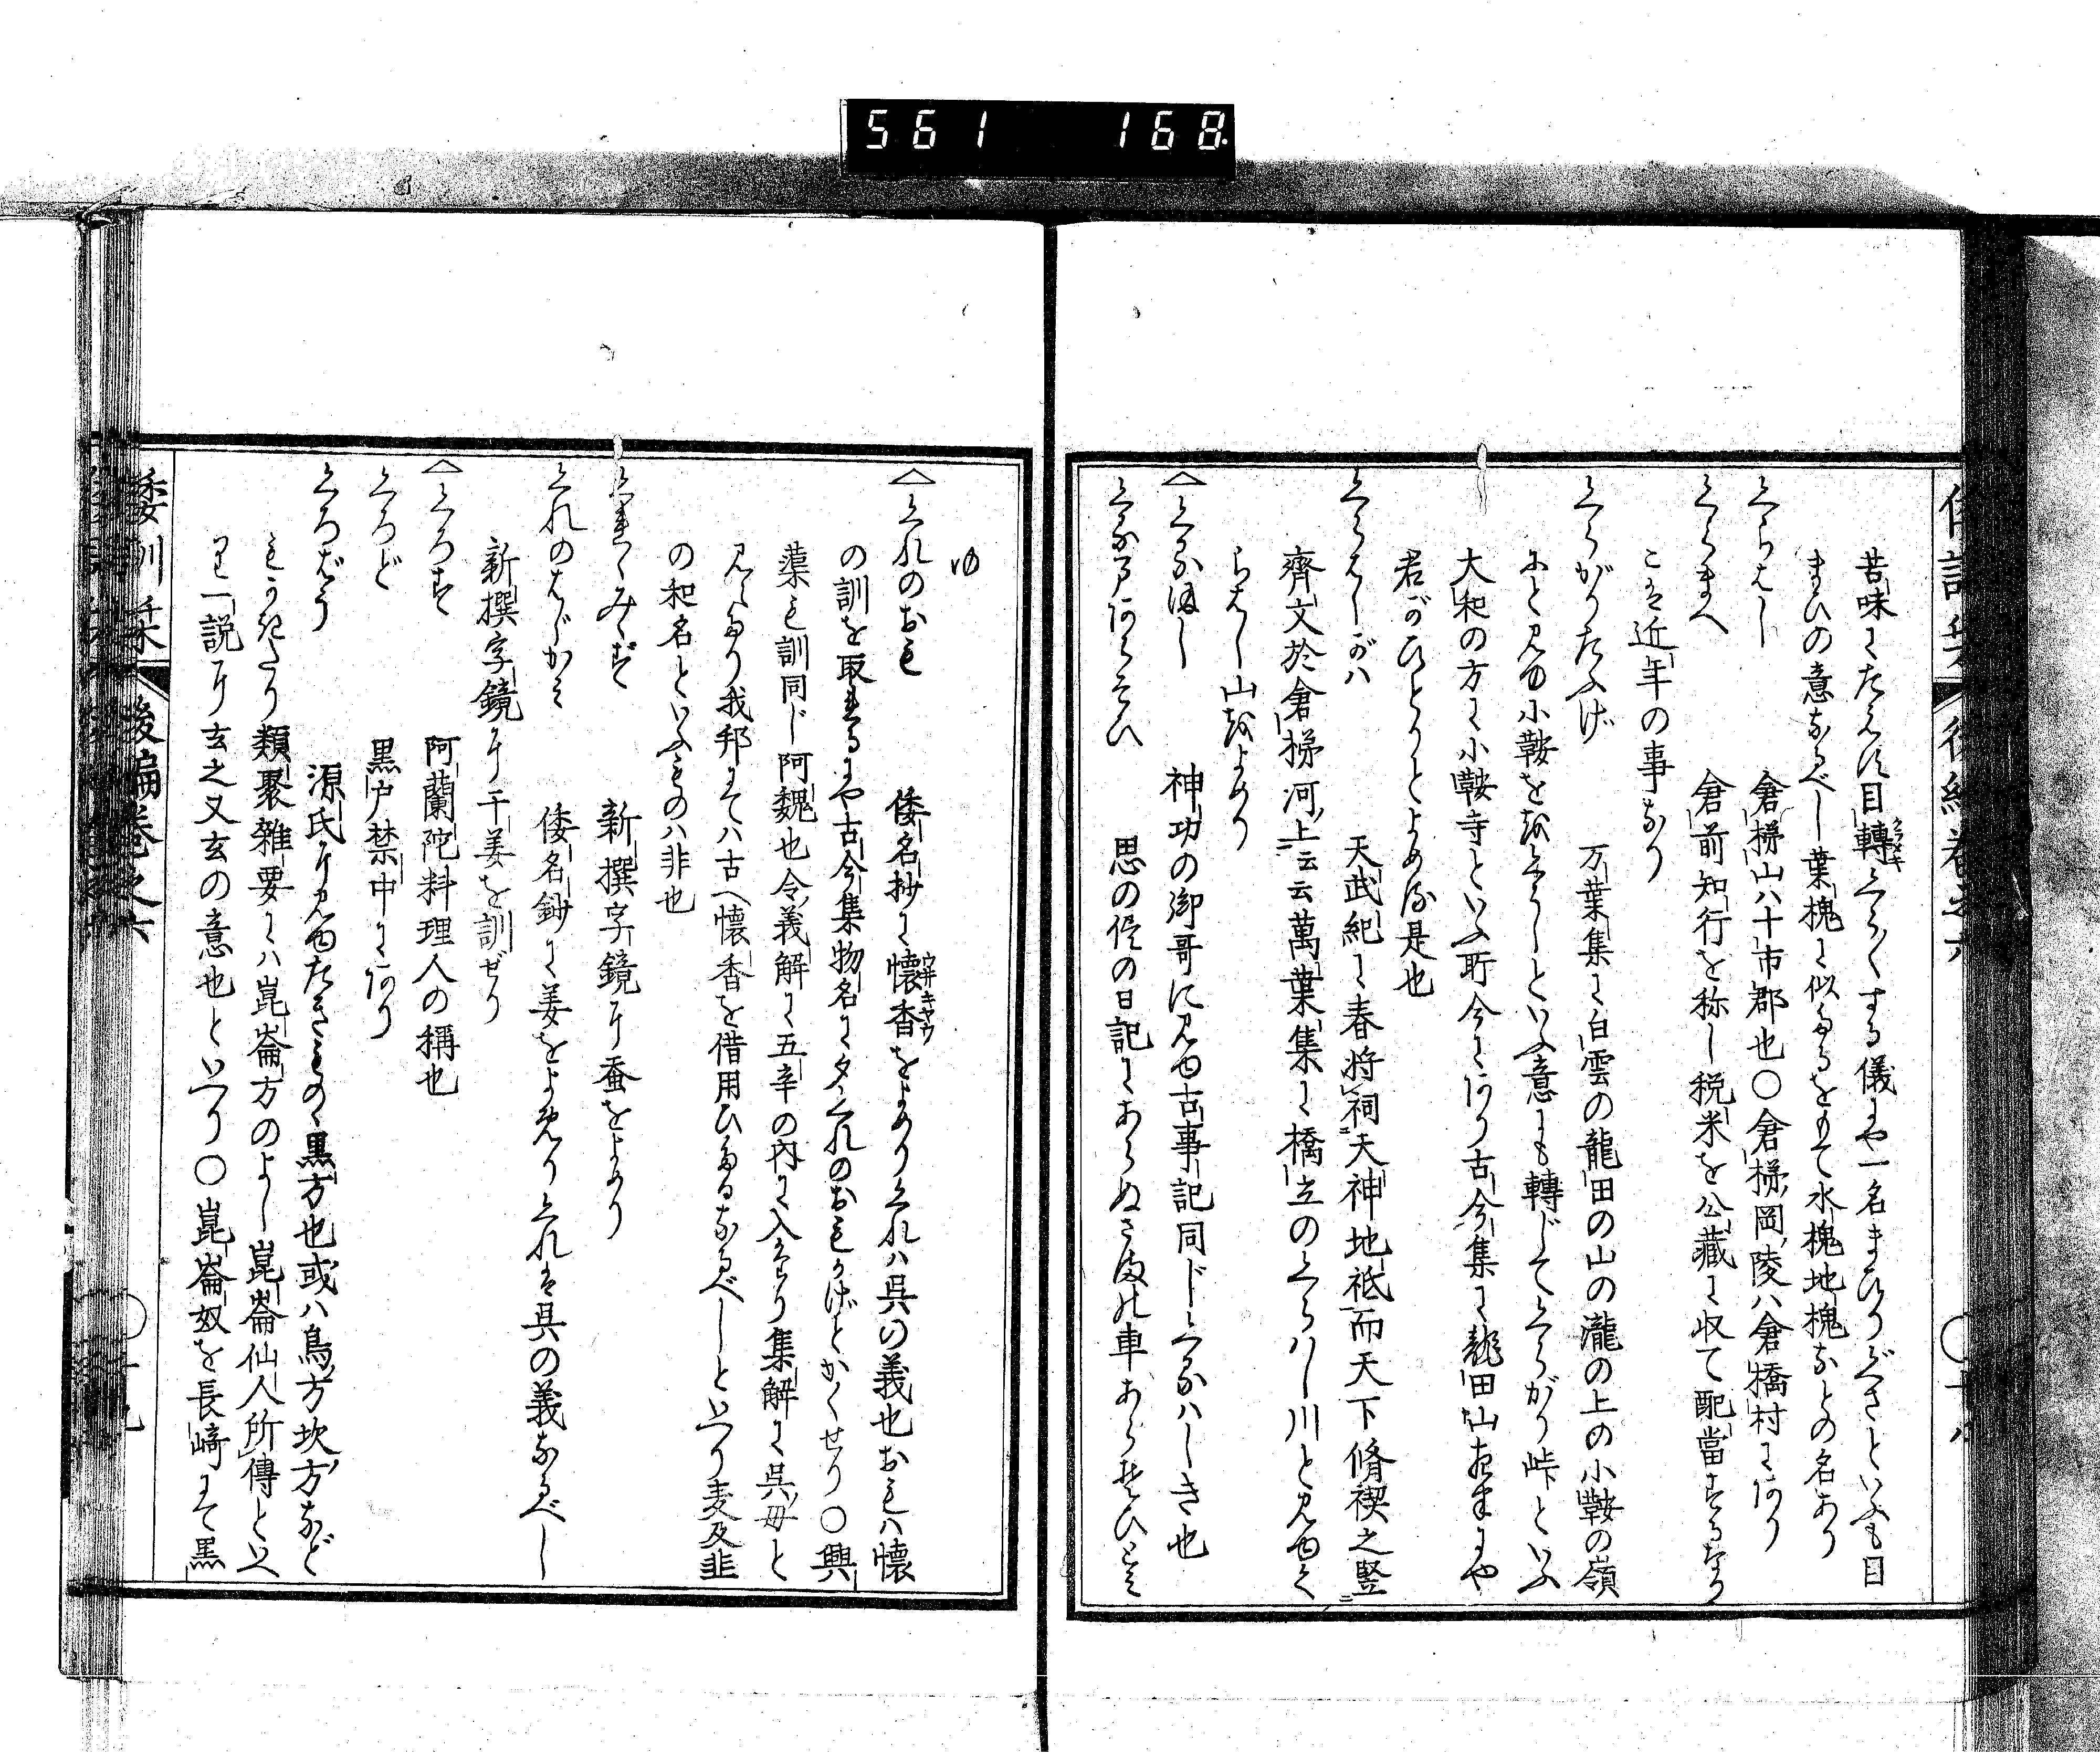 561 168
苦味にたへば目轉くらくする儀にや一名まひりぐさといふも目
クラメキ
まひの意なるべし葉槐に似たるをもて水槐地槐などの名あり
くらはし 倉梯山ハ十市郡也〇倉梯岡陵ハ倉橋村にあり
くらまへ 倉前知行を称し税米を公藏に收て配當するなり
こは近年の事なり
くらがりたふげ 万葉集に白雲の龍田の山の瀧の上の小鞍の嶺
にと見ゆ小鞍を越くらしといふ意にも轉じてくらがり峠といふ
大和の方に小鞍寺といふ所今にあり古今集に龍田山夜半にや
君がひとりとよめる是也
くらはしがハ 天武紀に春将祠天神地祇而天下脩禊之竪
齊文於倉梯河上云云萬葉集に橋立のくらハし川と見ゆ
らはし山越よめり
くるほし 神功の御哥に見ゆ古事記同じくるハしき也
くるまあらそひ 思の侭の日記にあらぬさまの車あらそひとみ
ゆ
くれのおも 倭名抄に懷香をよめりくれハ呉の義也おもハ懷
ウヰキヤウ
の訓を取れるにや古今集物名にくれのおもかげとかくせり〇興
蕖も訓同じ阿魏也令義解に五辛の内に入たり集解に呉母と
見えたり我邦にてハ古へ懷香を借用ひたるなるべしといへり麦及韭
の和名といふものハ非也
くれくみゝず 新撰字鏡に蚕をよめり
くれのはじかみ 倭名鈔に姜をよめりくれは呉の義なるべし
新撰字鏡に干姜を訓ぜり
くろす 阿蘭陀料理人の稱也
くろど 黒戸禁中にあり
くろばう 源氏に見ゆたきもの黒方也或ハ烏方坎方など
もかけり類聚雜要にハ崑崙方のよし崑崙仙人所傳といへ
り一説に玄之又玄の意也といへり〇崑崙奴を長﨑にて黒
倭訓栞 後編巻之六